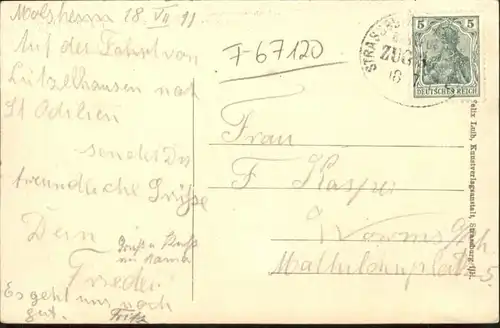 Molsheim 18 VII 11
Auf der Fahrt von
Lützelhausen nach
St Odilien
sendet Dir
freundliche Grüße
Dein
Frieder
Gruß u Kuß
an Mama
Es geht uns noch
gut. Fritz
F-67120
STRASSBURG
ZUG
18 7
5 5
DEUTSCHES REICH
Frau
F Kasper
Worms a/Rh
Mathildenplatz 5.
Felix Luib, Kunstverlagsanstalt, Strassburg i/Els.